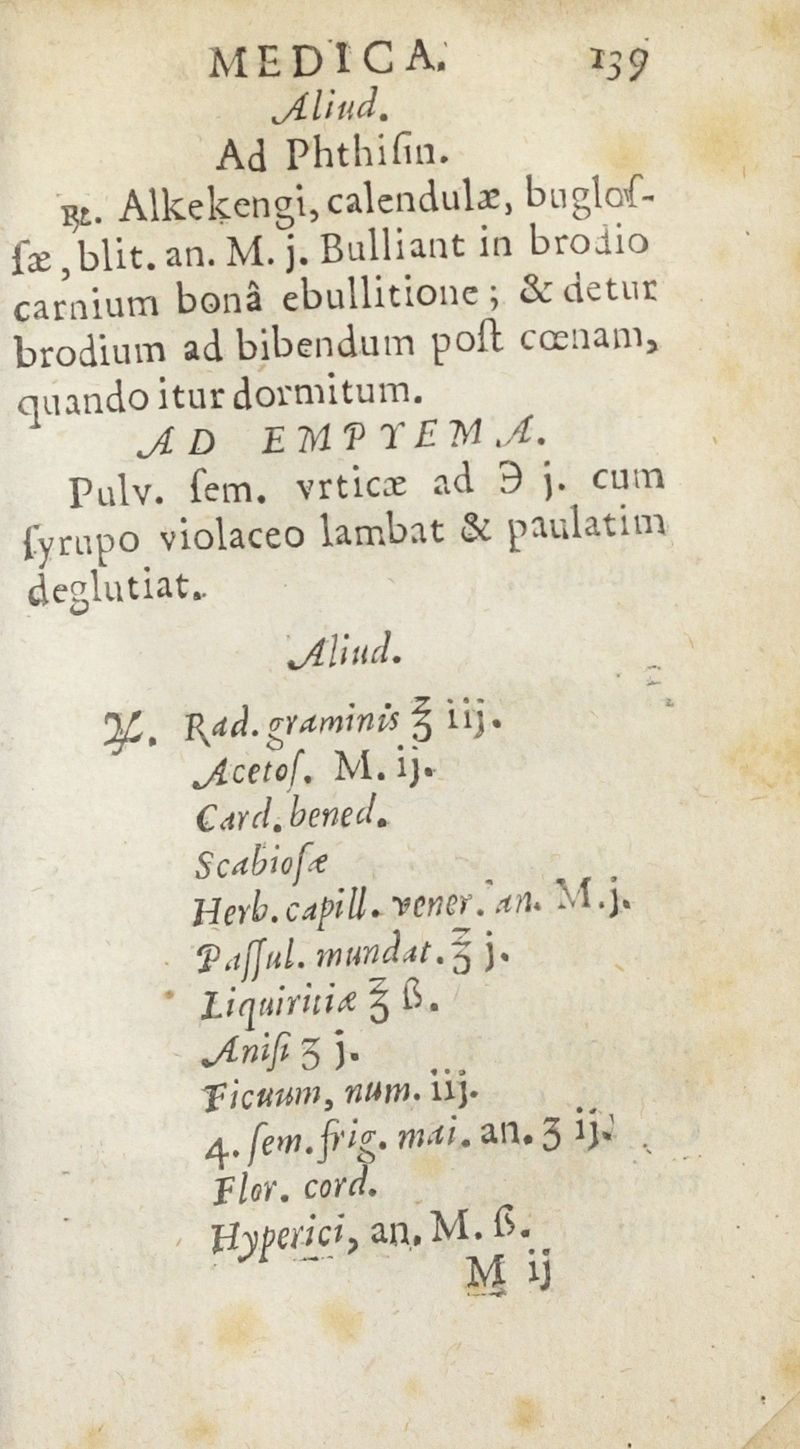 MEDICA. 139
Aliud.
Ad Phthiſin.
℞. Alkekengi, calendulæ, bugloſ-
ſæ, blit. an. M. j. Bulliant in brodio
carnium bonâ ebullitione; & detur
brodium ad bibendum poſt cœnam,
quando itur dormitum.
AD EMPYEMA.
Pulv. ſem. vrticæ ad ℈ j. cum
ſyrupo violaceo lambat & paulatim
deglutiat.
Aliud.
℞. Rad. graminis ℥ iij.
Acetoſ. M. ij.
Card. bened.
Scabioſæ
Herb. capill. vener. an. M. j.
Paſſul. mundat. ℥ j.
Liquiritiæ ℥ ß.
Aniſi ʒ j.
Ficuum, num. iij.
4. ſem. frig. mai. an. ʒ ij.
Flor. cord.
Hyperici, an. M. ß.
M ij